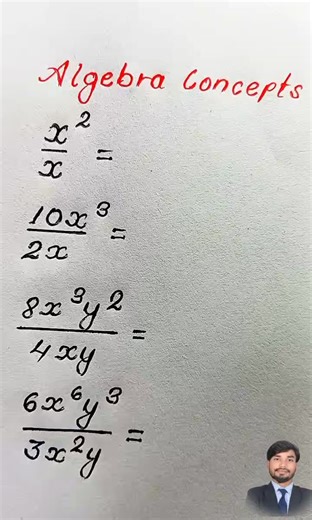 Algebra Concepts
x² / x =
10x³ / 2x =
8x³y² / 4xy =
6x⁶y³ / 3x²y =